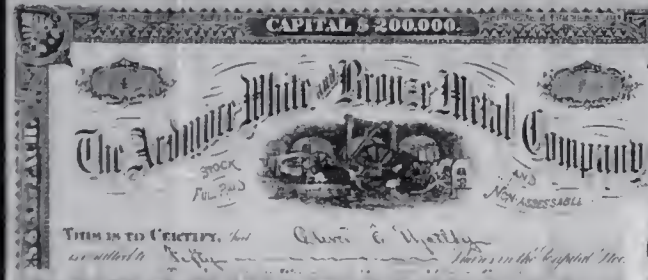 CAPITAL $ 200.000.
The Ardmore White and Bronze Metal Company
STOCK AND
FULL PAID NON-ASSESSABLE
THIS IS TO CERTIFY, that
is entitled to Fifty Shares in the Capital Stoc